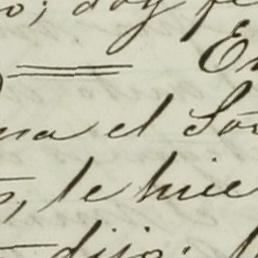 o; doy fe
En
na el So
s, le hice
dijo: